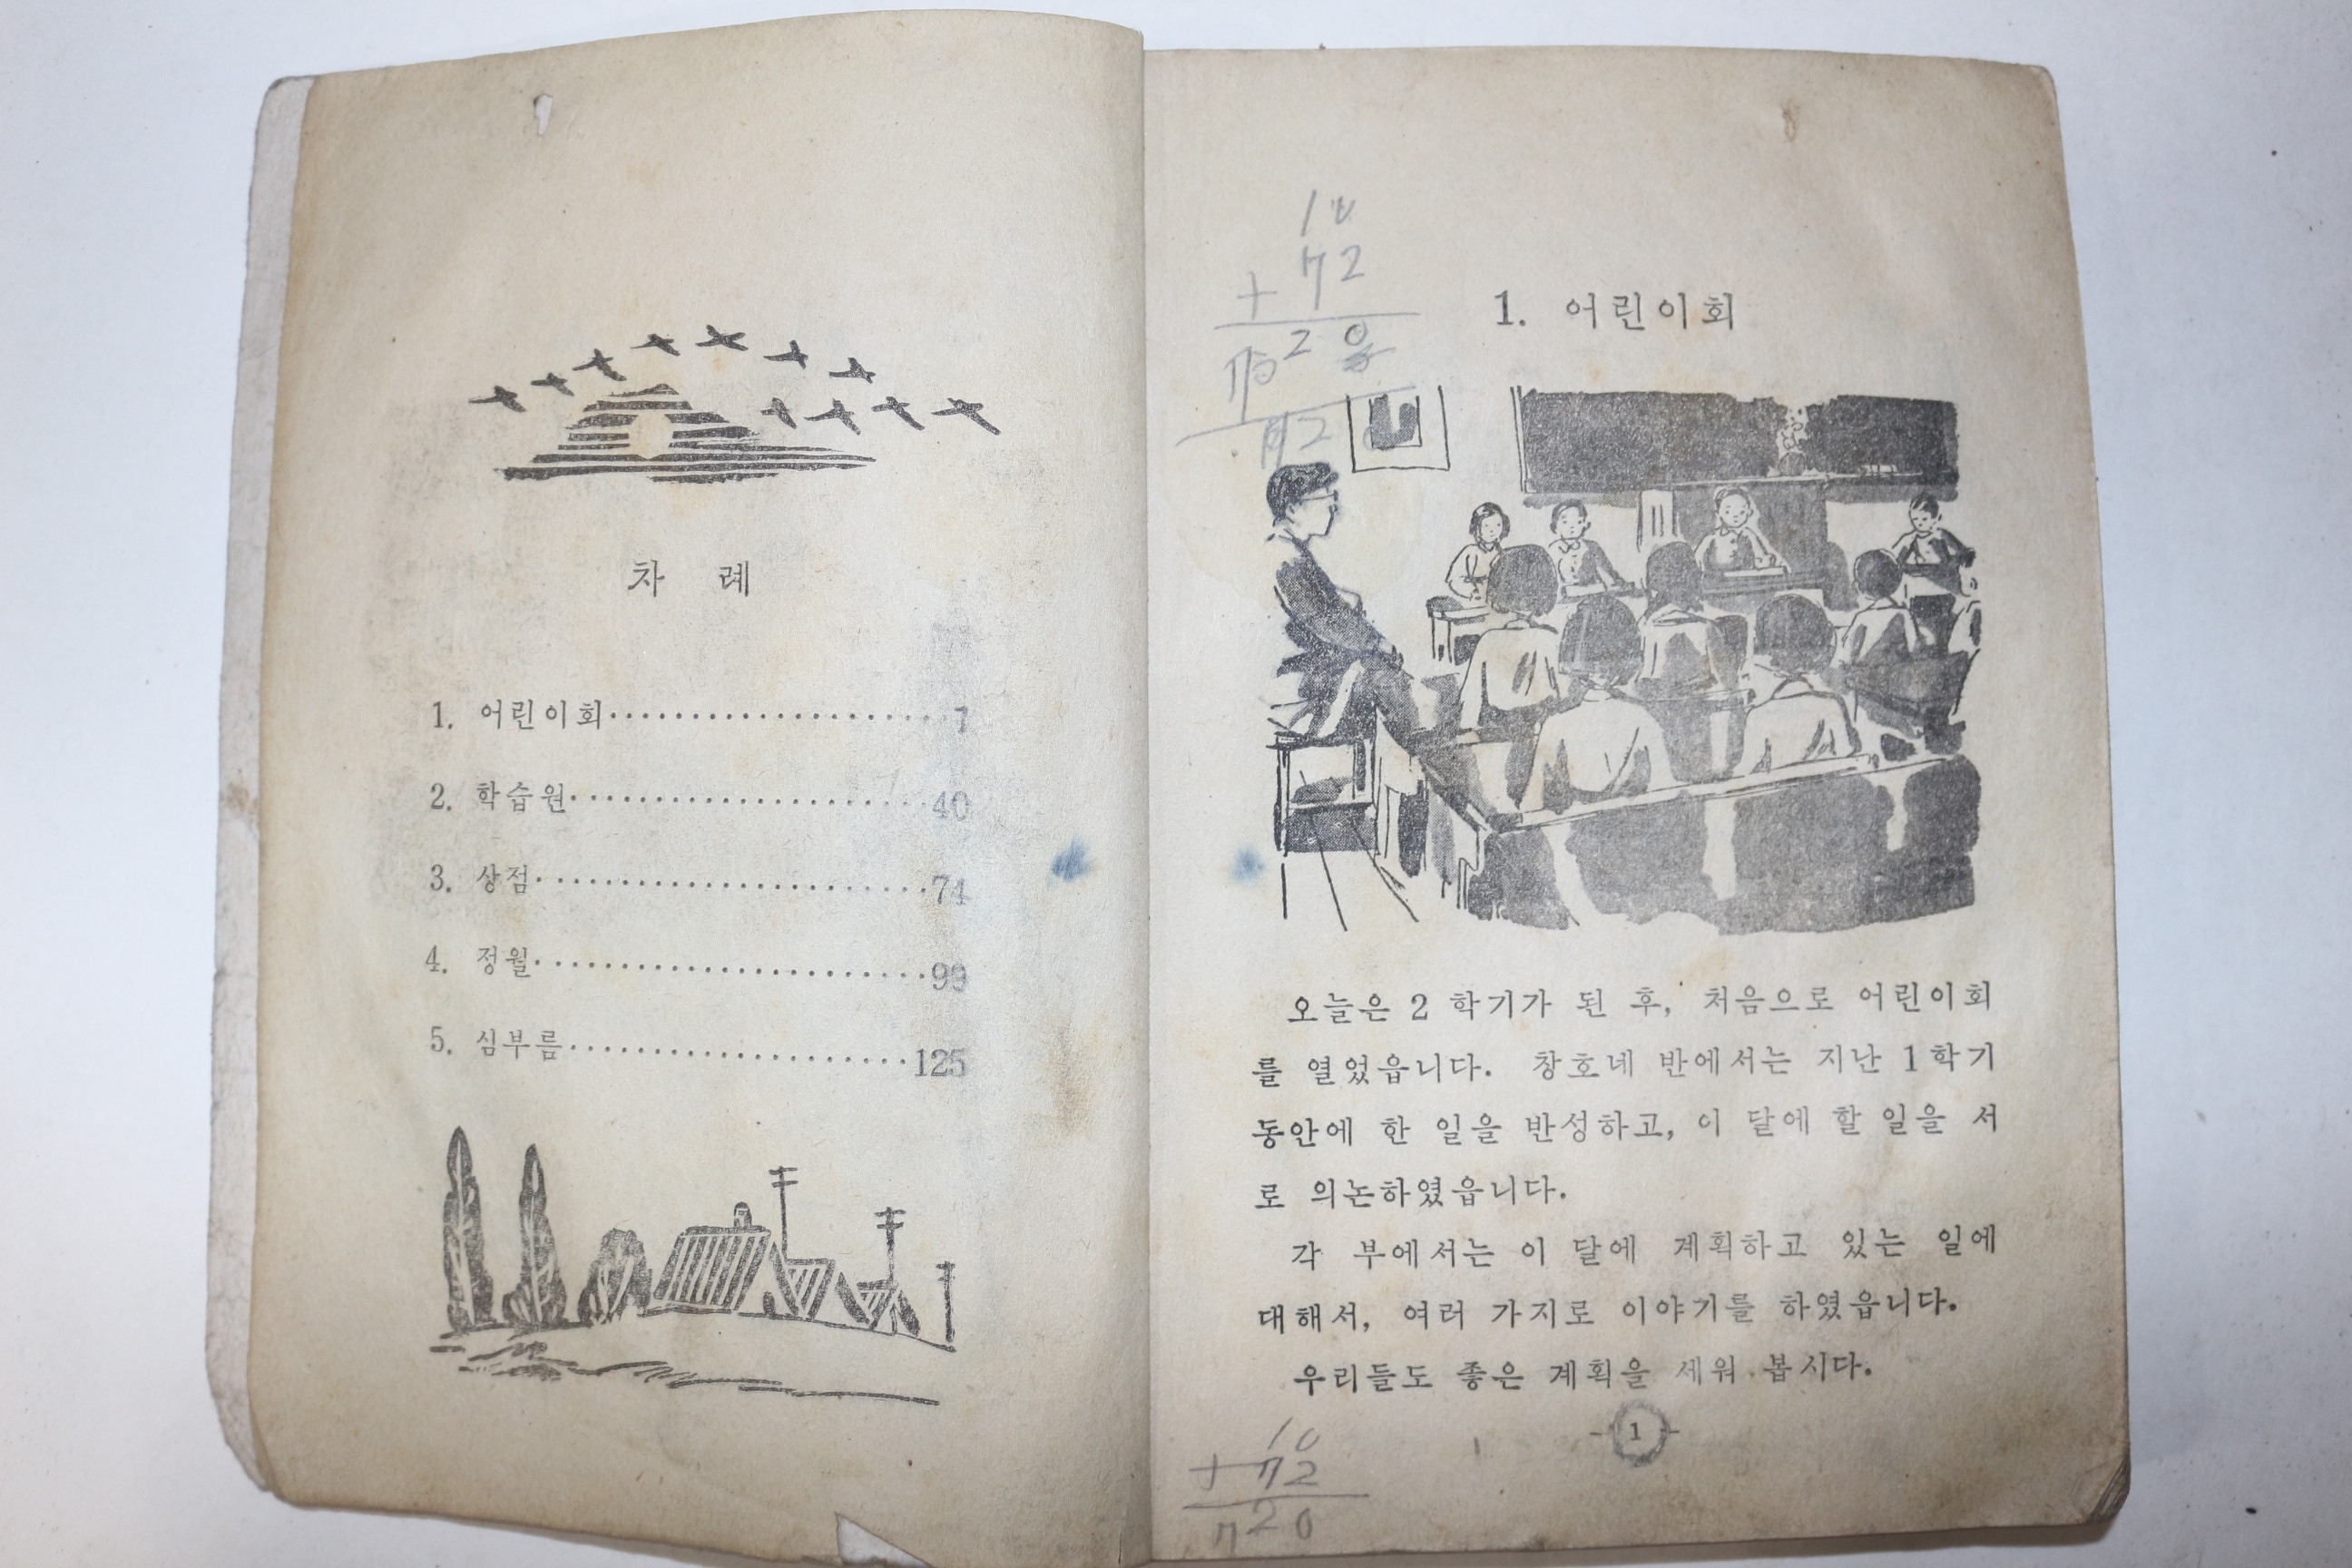 차 례
1. 어린이회·····················1
2. 학습원·····················40
3. 상점·····················74
4. 정월·····················99
5. 심부름·····················125
10
72
+
20
1. 어린이회
오늘은 2 학기가 된 후, 처음으로 어린이회
를 열었읍니다. 창호네 반에서는 지난 1학기
동안에 한 일을 반성하고, 이 달에 할 일을 서
로 의논하였읍니다.
각 부에서는 이 달에 계획하고 있는 일에
대해서, 여러 가지로 이야기를 하였읍니다.
우리들도 좋은 계획을 세워 봅시다.
- 1 -
10
+ 72
720